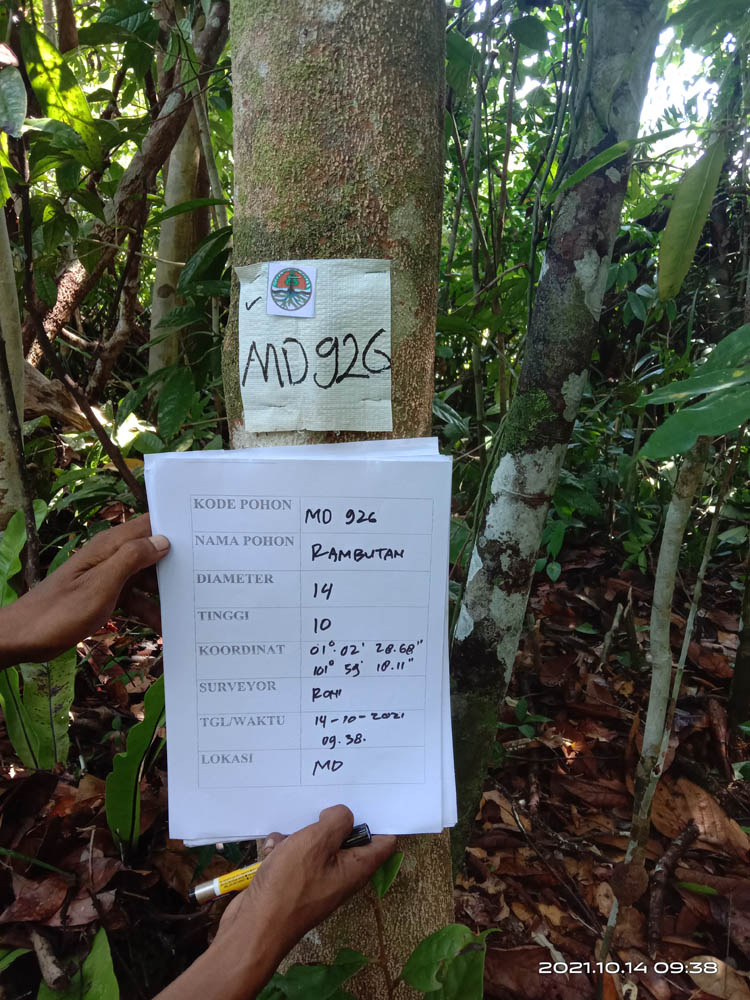 MD 926
KODE POHON MD 926
NAMA POHON RAMBUTAN
DIAMETER 14
TINGGI 10
KOORDINAT 01° 02' 28.68"
101° 59' 18.11"
SURVEYOR ROHI
TGL/WAKTU 14-10-2021
09.38.
LOKASI MD
2021.10.14 09:38